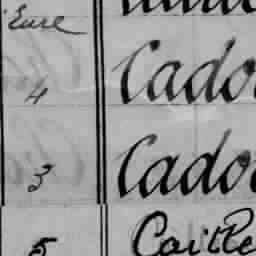 Eure
4 Cado
3 Cado
5 Caille